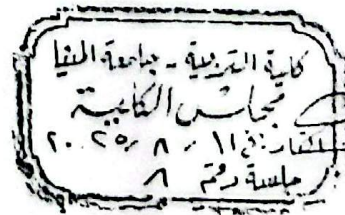 كلية التربية - جامعة المنيا
مجلس الكلية
في ١١ / ٨ / ٢٠٢٥
جلسة رقم ٨